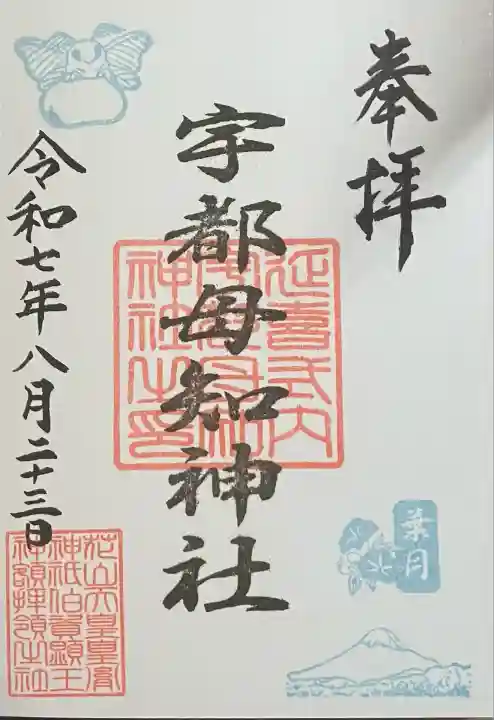 奉拝
葉月
宇都母知神社
延喜式内
宇都母知
神社之印
令和七年八月二十三日
花山天皇皇裔
神祇伯資顕王
神額拝領之社